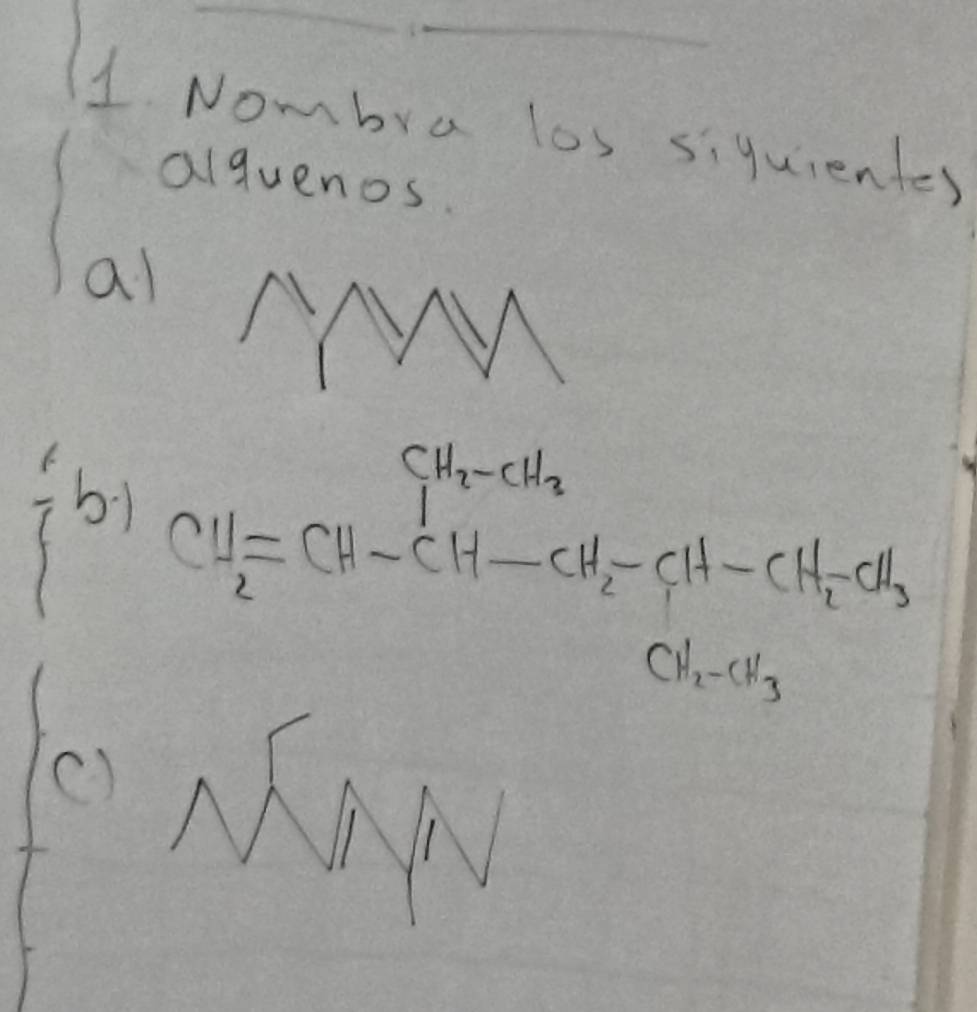 1. Nombra los siguientes
alquenos.
a)
CH2-CH3
b) CH2=CH-CH-CH2-CH-CH2-CH3
CH2-CH3
c)